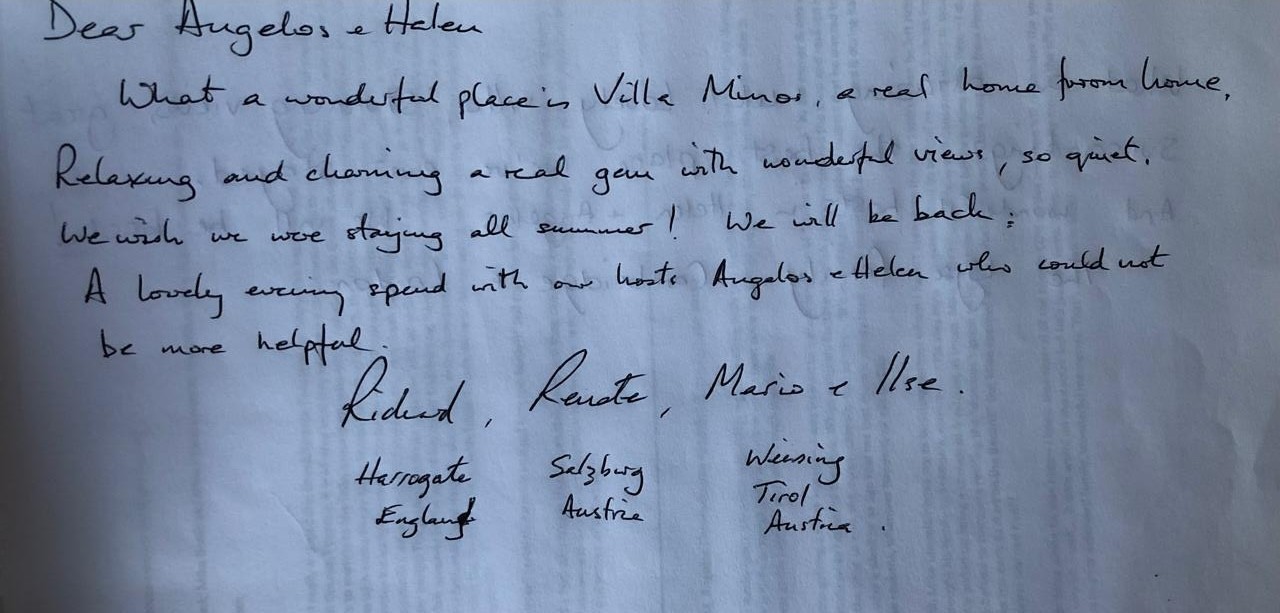 Dear Angelos e Helen
What a wonderful place is Villa Minos, a real home from home,
Relaxing and charming a real gem with wonderful views, so quiet.
We wish we were staying all summer! We will be back:
A lovely evening spend with our hosts Angelos e Helen who could not
be more helpful.
Richard, Renate, Mario e Ilse.
Harrogate Salzburg Weising
England Austria Tirol
Austria.